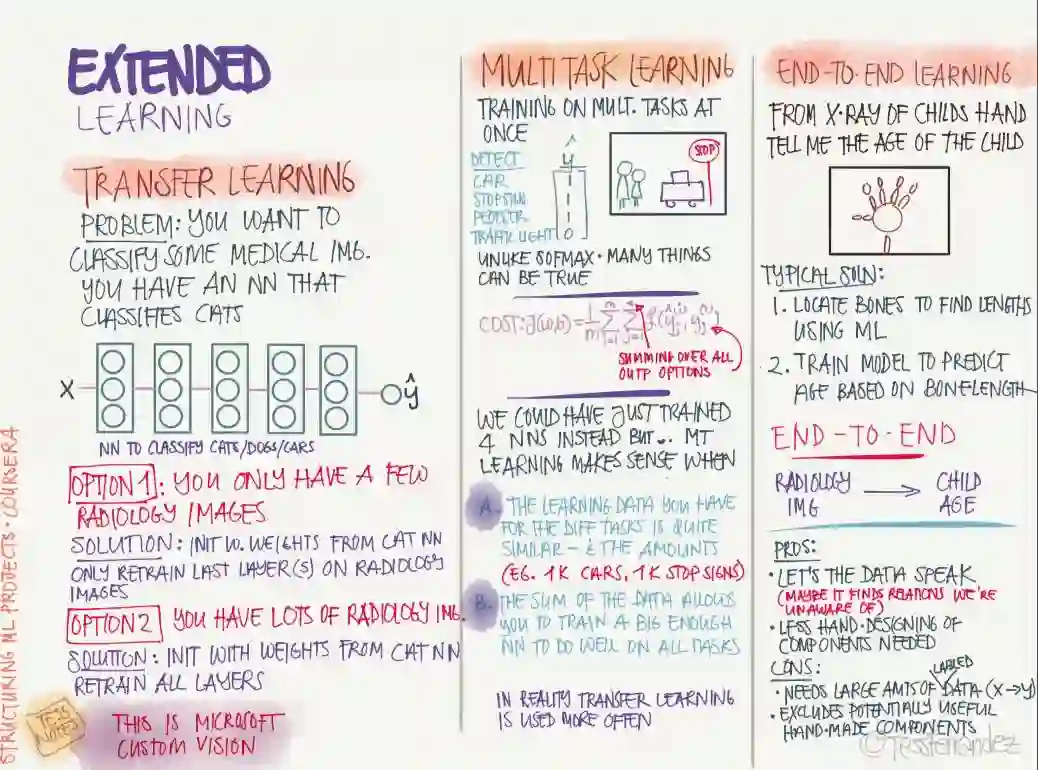 EXTENDED
LEARNING
TRANSFER LEARNING
PROBLEM: YOU WANT TO
CLASSIFY SOME MEDICAL IMG.
YOU HAVE AN NN THAT
CLASSIFIES CATS
X
ŷ
NN TO CLASSIFY CATS/DOGS/CARS
OPTION 1: YOU ONLY HAVE A FEW
RADIOLOGY IMAGES
SOLUTION: INIT W. WEIGHTS FROM CAT NN
ONLY RETRAIN LAST LAYER(S) ON RADIOLOGY
IMAGES
OPTION 2 YOU HAVE LOTS OF RADIOLOGY IMG.
SOLUTION: INIT WITH WEIGHTS FROM CAT NN
RETRAIN ALL LAYERS
THIS IS MICROSOFT
CUSTOM VISION
TESS
NOTES
STRUCTURING ML PROJECTS · COURSERA
MULTITASK LEARNING
TRAINING ON MULT. TASKS AT
ONCE
DETECT
CAR
STOPSIGN
PEDESTR.
TRAFIK LIGHT
ŷ
0
STOP
UNLIKE SOFMAX · MANY THINGS
CAN BE TRUE
COST: J(w,b) =
SUMMING OVER ALL
OUTP OPTIONS
WE COULD HAVE JUST TRAINED
4 NNS INSTEAD BUT... MT
LEARNING MAKES SENSE WHEN
A. THE LEARNING DATA YOU HAVE
FOR THE DIFF TASKS IS QUITE
SIMILAR – & THE AMOUNTS
(EG. 1K CARS, 1K STOP SIGNS)
B. THE SUM OF THE DATA ALLOWS
YOU TO TRAIN A BIG ENOUGH
NN TO DO WELL ON ALL TASKS
IN REALITY TRANSFER LEARNING
IS USED MORE OFTEN
END-TO-END LEARNING
FROM X-RAY OF CHILDS HAND
TELL ME THE AGE OF THE CHILD
TYPICAL SOLN:
1. LOCATE BONES TO FIND LENGTHS
USING ML
2. TRAIN MODEL TO PREDICT
AGE BASED ON BONELENGTH
END-TO-END
RADIOLOGY → CHILD
IMG AGE
PROS:
· LET'S THE DATA SPEAK
(MAYBE IT FINDS RELATIONS WE'RE
UNAWARE OF)
· LESS HAND-DESIGNING OF
COMPONENTS NEEDED
CONS:
LABLED
· NEEDS LARGE AMTS OF DATA (X→Y)
· EXCLUDES POTENTIALLY USEFUL
HAND-MADE COMPONENTS
©Tessfernandez